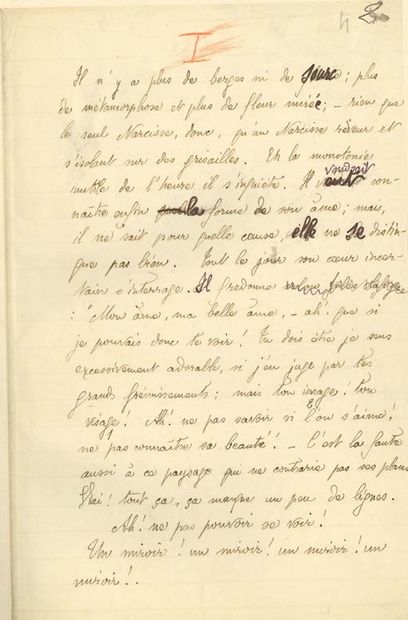 4 2
I
Il n'y a plus de berges ni de source ; plus
de métamorphose et plus de fleur mirée ; – rien que
le seul Narcisse, donc, qu'un Narcisse rêveur et
s'isolant sur des grisailles. En la monotonie
inutile de l'heure il s'inquiète. Il voudrait con-
naître enfin la forme de son âme ; mais,
il ne sait pour quelle cause, elle ne se distin-
gue pas bien. Tout le jour son cœur incer-
tain s'interroge. Il fredonne
: "Mon âme, ma belle âme, – ah ! que si
je pouvais donc te voir ! Tu dois être je sens
excessivement adorable, si j'en juge par tes
grands frémissements ; mais ton visage ! ton
visage ! Ah ! ne pas savoir si l'on s'aime !
ne pas connaître sa beauté ! – C'est la faute
aussi à ce paysage qui ne contrarie pas ses plans
Vrai ! tout ça, ça manque un peu de lignes.
Ah ! ne pas pouvoir se voir !
Un miroir ! un miroir ! un miroir ! un
miroir ! .